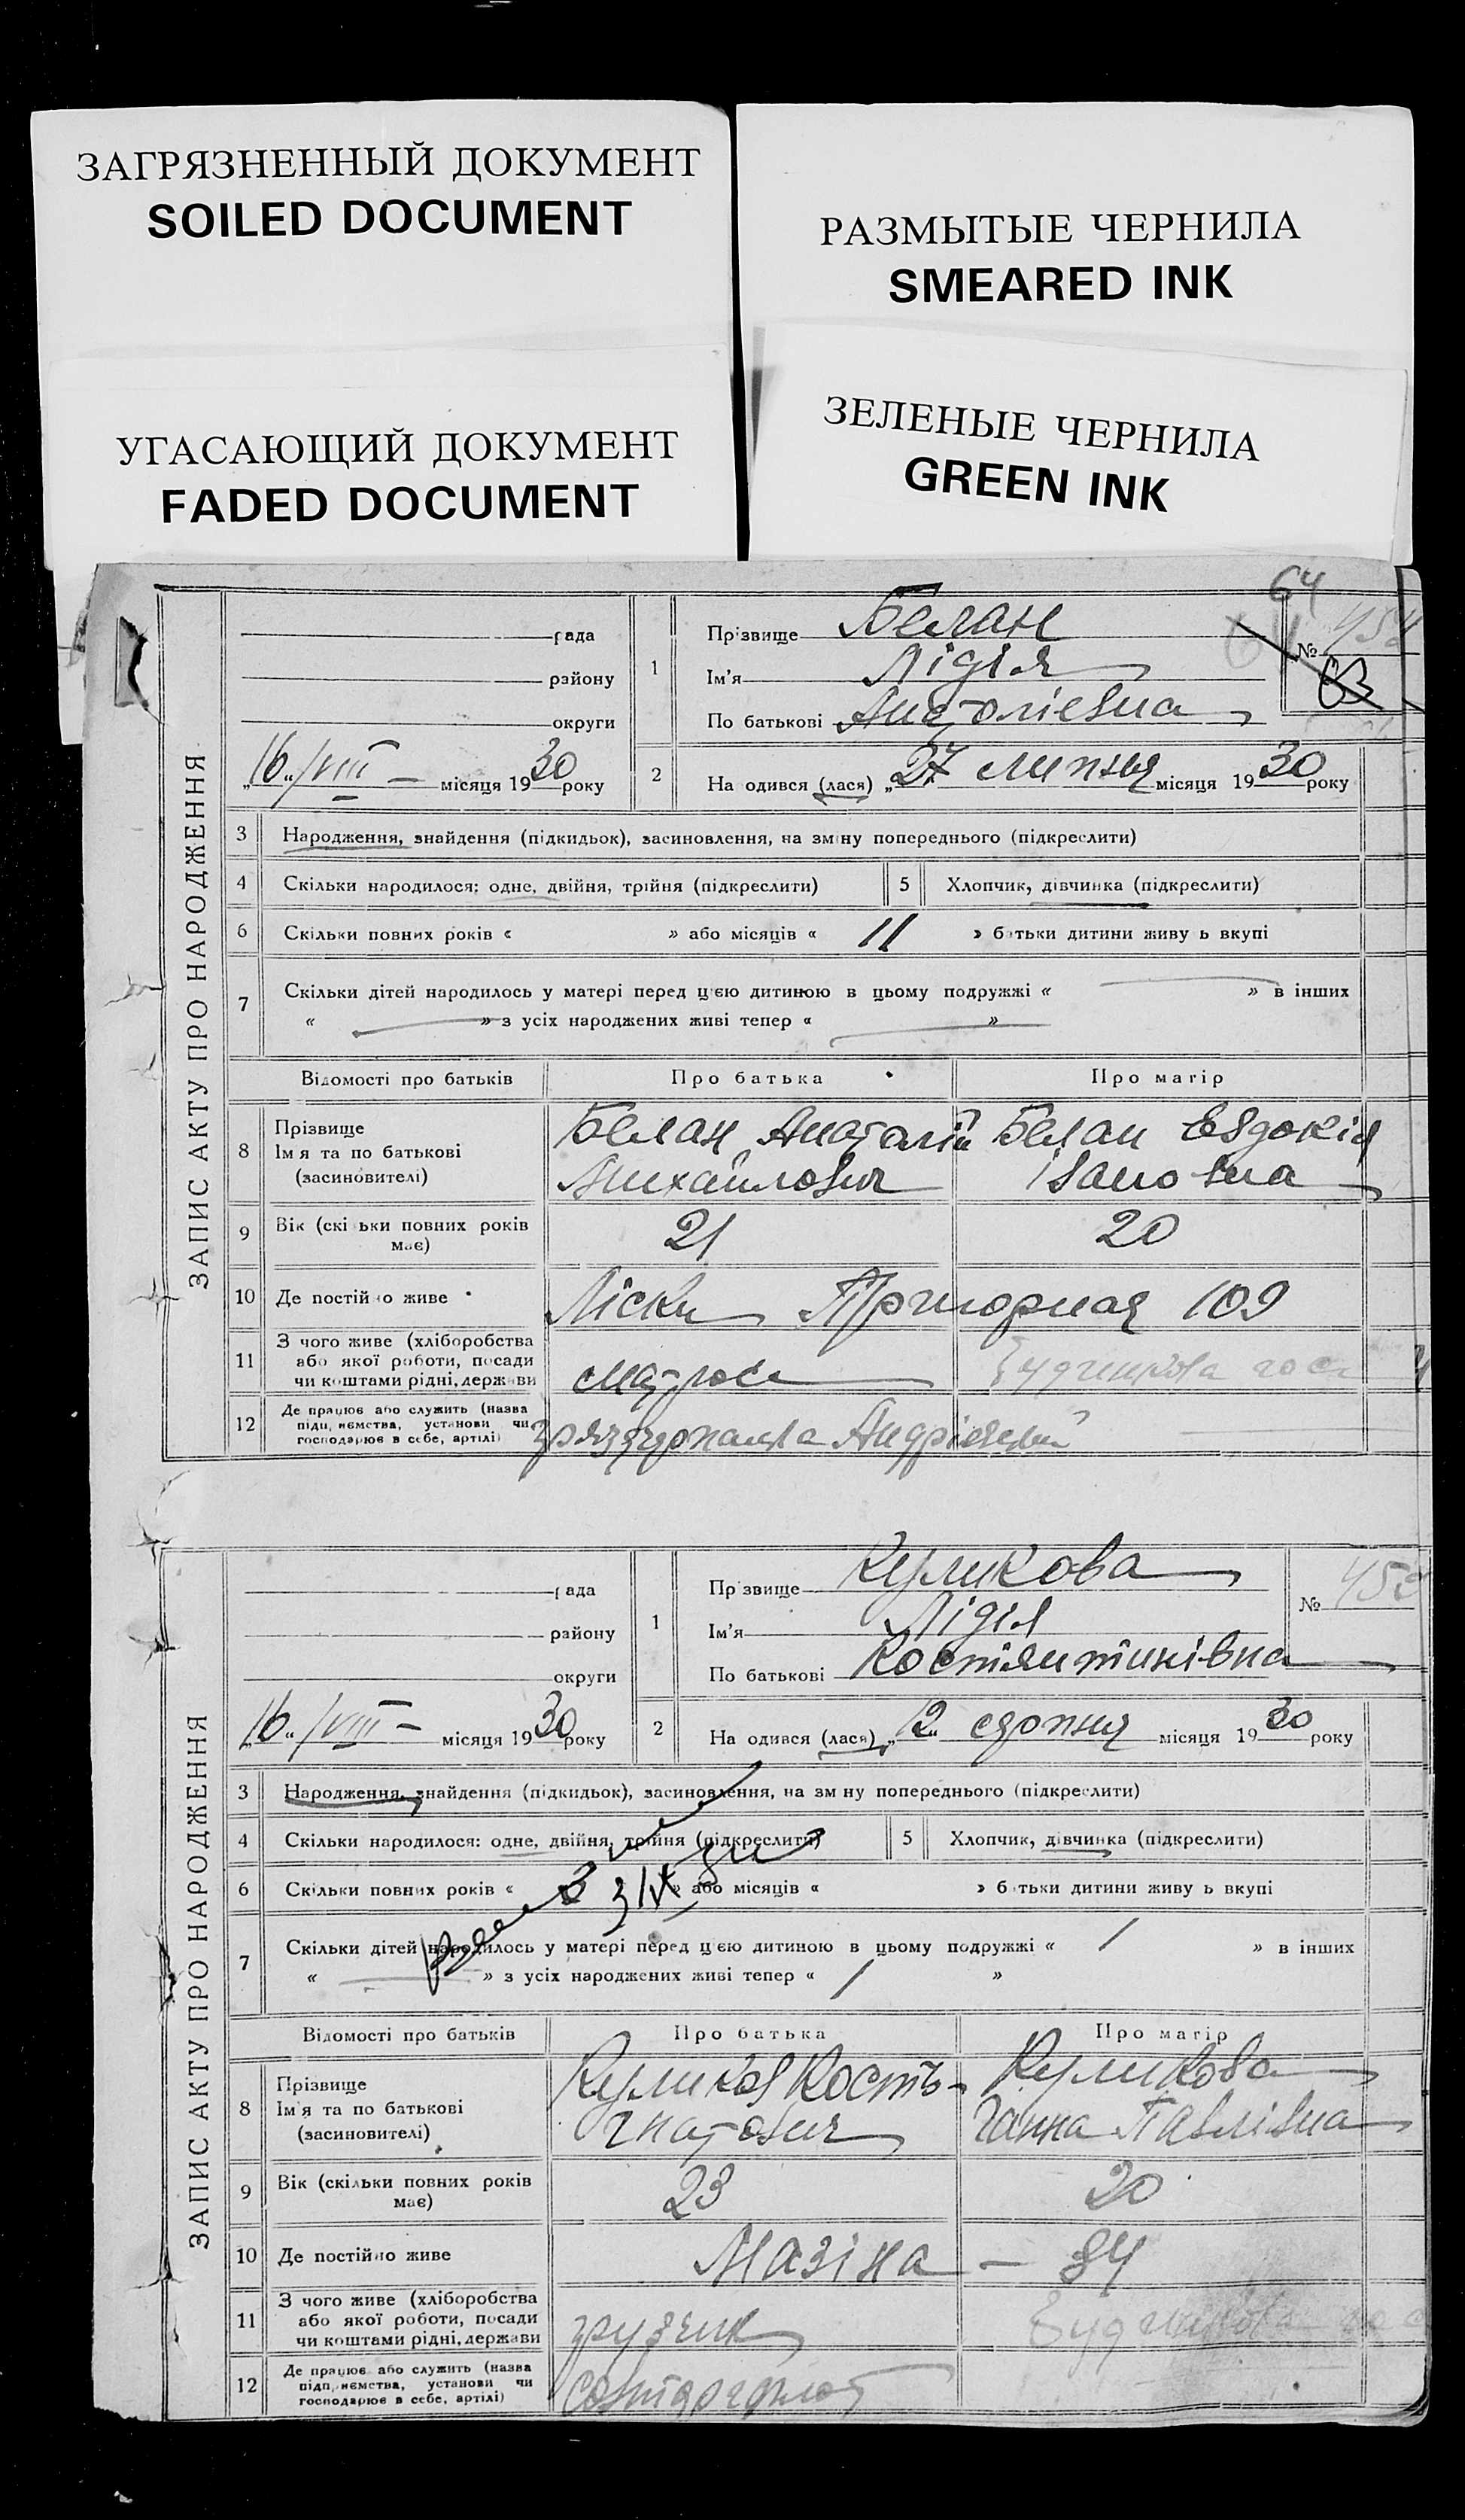 ЗАГРЯЗНЕННЫЙ ДОКУМЕНТ
SOILED DOCUMENT
РАЗМЫТЫЕ ЧЕРНИЛА
SMEARED INK
УГАСАЮЩИЙ ДОКУМЕНТ
FADED DOCUMENT
ЗЕЛЕНЫЕ ЧЕРНИЛА
GREEN INK
64
ЗАПИС АКТУ ПРО НАРОДЖЕННЯ
рада
району
округи
„16„/VIII — місяця 1930 року
1
Прізвище Белан
Ім'я Лідія
По батькові Анатоліевна
№
63
2
На одився (лася) „27 липня місяця 1930 року
3 Народження, знайдення (підкидьок), засиновлення, на зміну попереднього (підкреслити)
4 Скільки народилося: одне, двійня, трійня (підкреслити) 5 Хлопчик, дівчинка (підкреслити)
6 Скільки повних років « » або місяців « 11 » батьки дитини живу ь вкупі
7 Скільки дітей народилось у матері перед цією дитиною в цьому подружжі « — » в інших
« — » з усіх народжених живі тепер « — »
Відомості про батьків Про батька Про матір
8 Прізвище
Ім я та по батькові
(засиновителі)
Белан Анатолій
Михайлович
Белан Евдокія
Івановна
9 Вік (скі ьки повних років
має)
21 20
10 Де постійно живе Ліски Пригорная 109
11 З чого живе (хліборобства
або якої роботи, посади
чи коштами рідні, держави
матрос
12 Де працює або служить (назва
підприємства, установи чи
господарює в себе, артілі)
ЗАПИС АКТУ ПРО НАРОДЖЕННЯ
рада
району
округи
„16„/VIII — місяця 1930 року
1
Прізвище Куликова
Ім'я Лідія
По батькові Костянтинівна
№
2
На одився (лася) „12„ серпня місяця 1930 року
3 Народження, знайдення (підкидьок), засиновлення, на зм ну попереднього (підкреслити)
4 Скільки народилося: одне, двійня, трійня (підкреслити) 5 Хлопчик, дівчинка (підкреслити)
6 Скільки повних років « 3 » або місяців « » батьки дитини живу ь вкупі
7 Скільки дітей народилось у матері перед цією дитиною в цьому подружжі « 1 » в інших
« — » з усіх народжених живі тепер « 1 »
Відомості про батьків Про батька Про матір
8 Прізвище
Ім'я та по батькові
(засиновителі)
Куликов Кость
Гнатович
Куликова
Ганна Павлівна
9 Вік (скільки повних років
має)
23 20
10 Де постійно живе Мазіна — 84
11 З чого живе (хліборобства
або якої роботи, посади
чи коштами рідні, держави
грузчик
12 Де працює або служить (назва
підприємства, установи чи
господарює в себе, артілі)
Совторгфлот